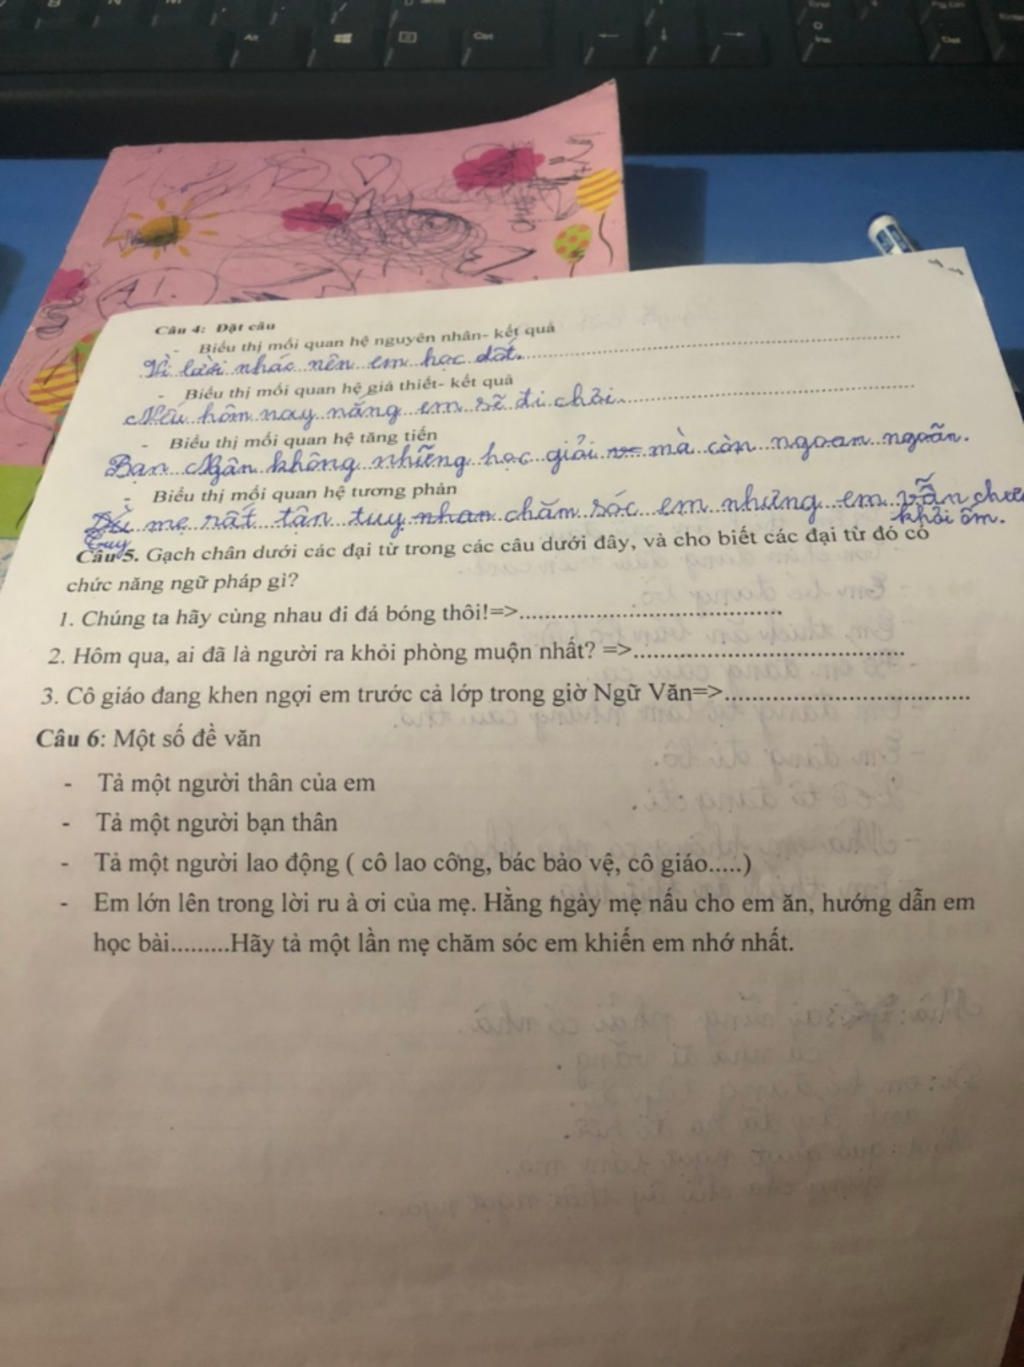 Câu 4: Đặt câu
- Biểu thị mối quan hệ nguyên nhân- kết quả
Vì lười nhác nên em học dốt.
- Biểu thị mối quan hệ giả thiết- kết quả
Nếu hôm nay nắng em sẽ đi chơi.
- Biểu thị mối quan hệ tăng tiến
Bạn Ngân không những học giỏi mà còn ngoan ngoãn.
- Biểu thị mối quan hệ tương phản
Tuy mẹ rất tận tuy chăm sóc em nhưng em vẫn chưa
khỏi ốm.
Câu 5. Gạch chân dưới các đại từ trong các câu dưới đây, và cho biết các đại từ đó có
chức năng ngữ pháp gì?
1. Chúng ta hãy cùng nhau đi đá bóng thôi!=>........................................
2. Hôm qua, ai đã là người ra khỏi phòng muộn nhất? =>........................................
3. Cô giáo đang khen ngợi em trước cả lớp trong giờ Ngữ Văn=>........................................
Câu 6: Một số đề văn
- Tả một người thân của em
- Tả một người bạn thân
- Tả một người lao động ( cô lao công, bác bảo vệ, cô giáo.....)
- Em lớn lên trong lời ru à ơi của mẹ. Hằng ngày mẹ nấu cho em ăn, hướng dẫn em
học bài.........Hãy tả một lần mẹ chăm sóc em khiến em nhớ nhất.